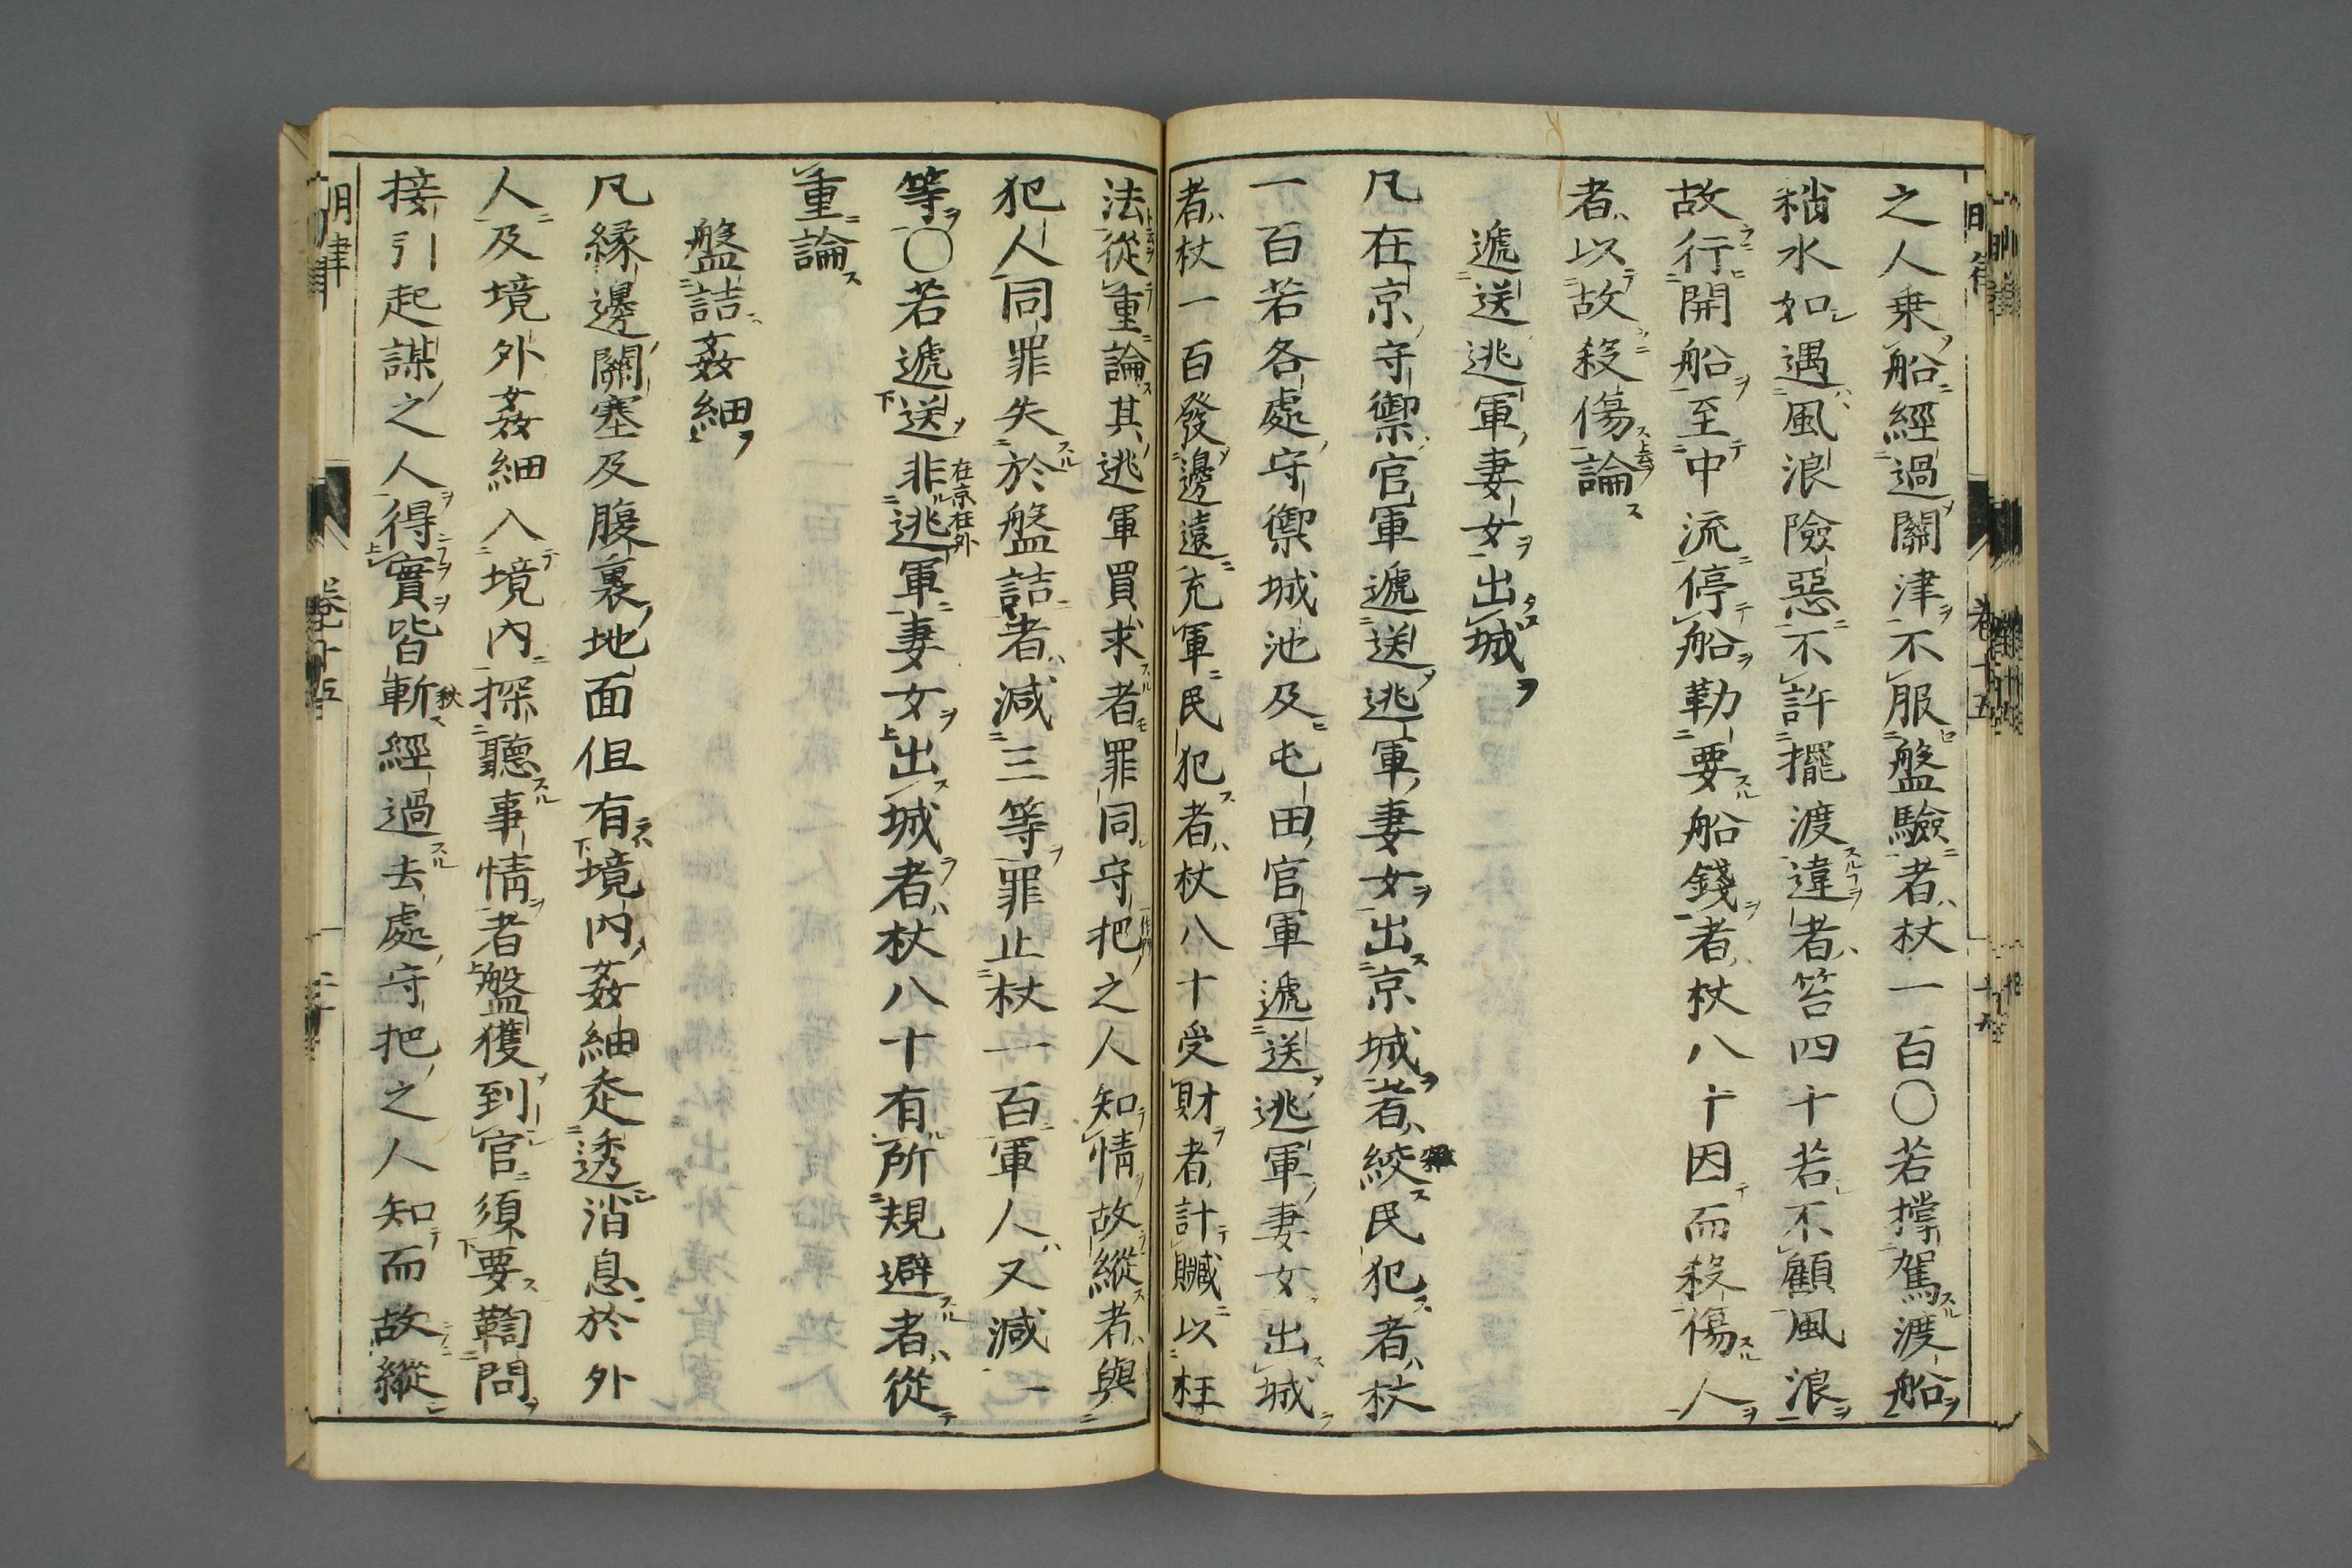 之人乗船經過關津不服盤驗者杖一百〇若撑駕渡船
稍水如遇風浪險惡不許擺渡違者笞四十若不顧風浪
故行開船至中流停船勒要船錢者杖八十因而殺傷人
者以故殺傷論
遞送逃軍妻女出城
凡在京守禦官軍遞送逃軍妻女出京城者絞民犯者杖
一百若各處守禦城池及屯田官軍遞送逃軍妻女出城
者杖一百發邊遠充軍民犯者杖八十受財者計贓以枉
法從重論其逃軍買求者罪同守把之人知情故縱者與
犯人同罪失於盤詰者減三等罪止杖一百軍人又減一
等〇若遞送非逃軍妻女出城者杖八十有所規避者從
在京在外
重論
盤詰姦細
凡縁邊關塞及腹裏地面但有境内姦細走透消息於外
人及境外姦細入境内探聽事情者盤獲到官須要鞫問
接引起謀之人得實皆斬經過去處守把之人知而故縱
明律
卷十五